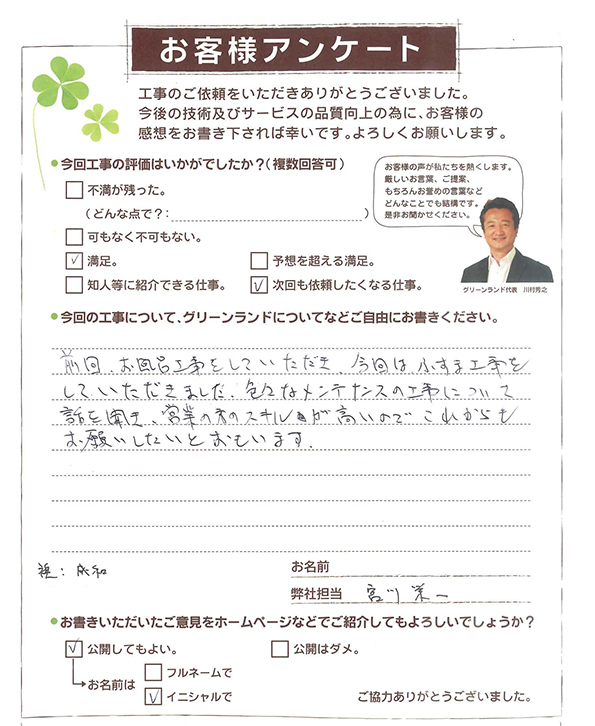 お客様アンケート
工事のご依頼をいただきありがとうございました。
今後の技術及びサービスの品質向上の為に、お客様の
感想をお書き下されば幸いです。よろしくお願いします。
●今回工事の評価はいかがでしたか？（複数回答可）
不満が残った。
（どんな点で？：　　　　　）
可もなく不可もない。
満足。
予想を超える満足。
知人等に紹介できる仕事。
次回も依頼したくなる仕事。
お客様の声が私たちを熱くします。
厳しいお言葉、ご提案、
もちろんお誉めの言葉など
どんなことでも結構です。
是非お聞かせください。
グリーンランド代表　川村秀之
●今回の工事について、グリーンランドについてなどご自由にお書きください。
前回、お風呂工事をしていただき、今回は ふすま工事を
していただきました。色々なメンテナンスの工事について
話を聞き、営業の方のスキルが高いので これからも
お願いしたいとおもいます.
お名前
弊社担当　宮川 栄一
●お書きいただいたご意見をホームページなどでご紹介してもよろしいでしょうか？
公開してもよい。
公開はダメ。
お名前は
フルネームで
イニシャルで
ご協力ありがとうございました。